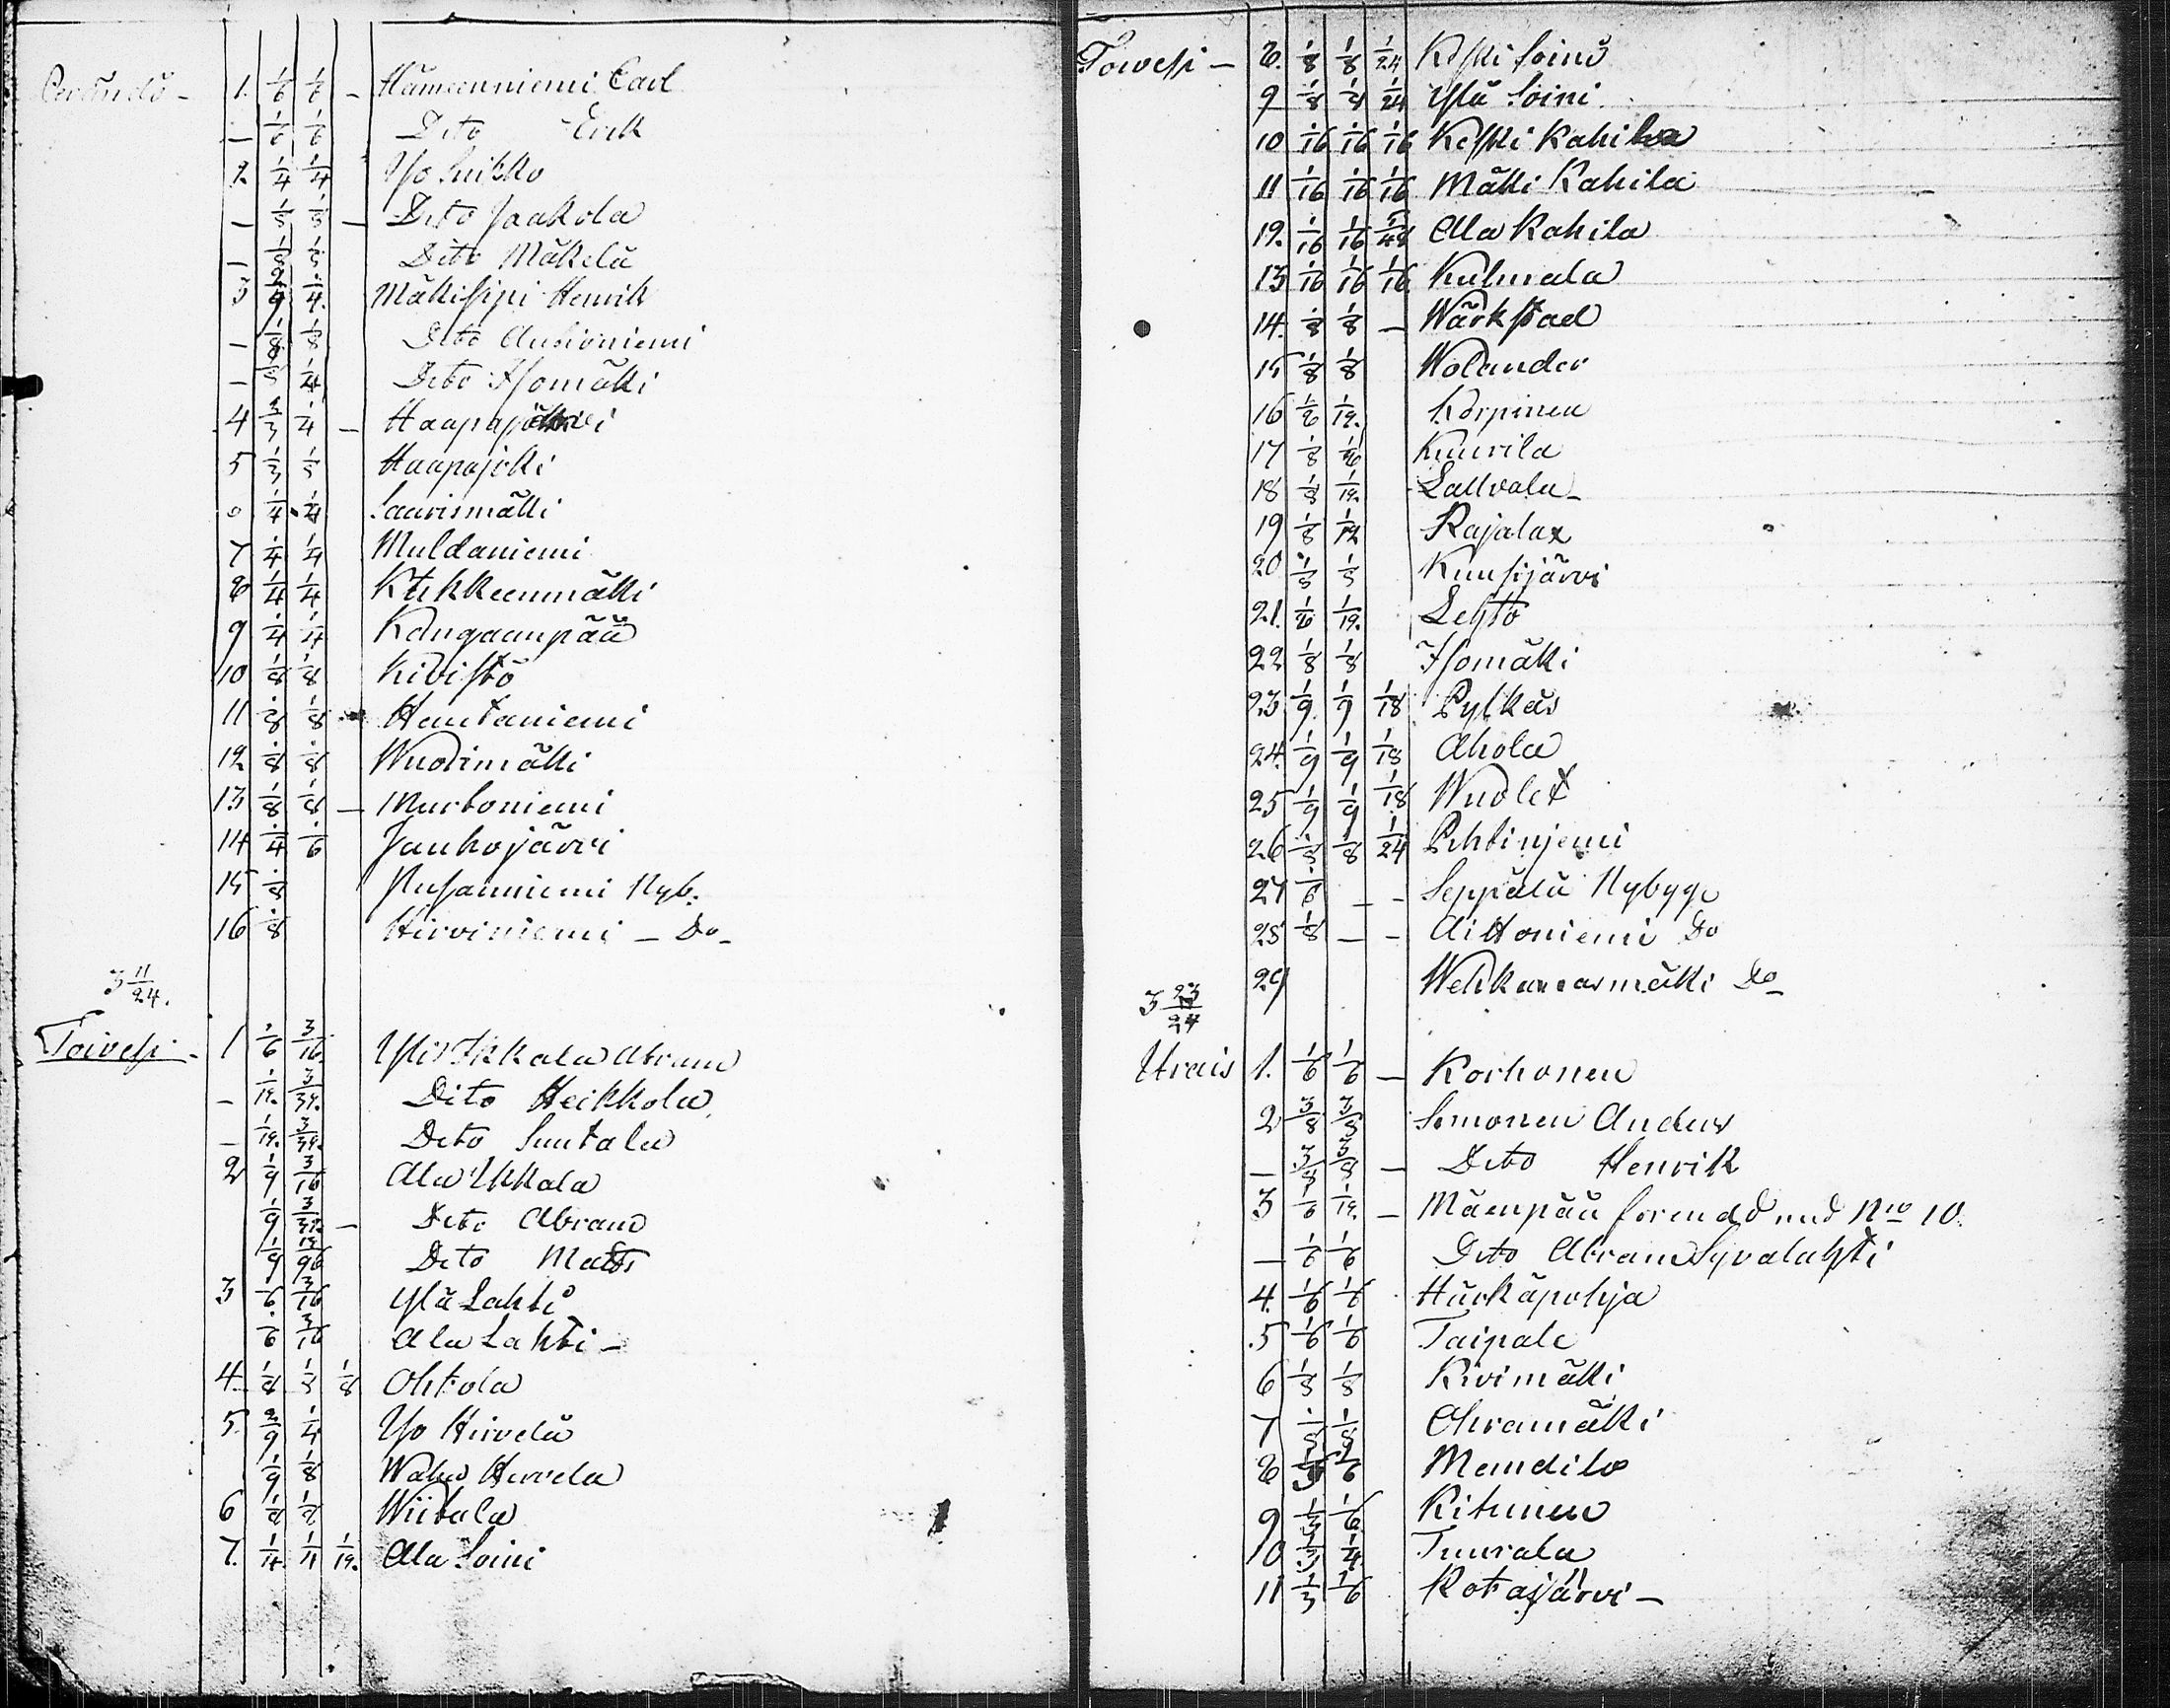 Perändö - 1. 1/6 1/6 - Hämeenniemi Carl
- 1/6 1/6 Dito Erik
2. 1/4 1/4 Iso
- 1/8 1/8 - Dito Jaakola
- 1/8 1/8 Dito Mäkelä
3 2/9 1/4 Henrik
- 1/8 1/8 Dito
- 1/4 Dito Isomäki
4 2/3 1/4 -
5 1/3 1/3 Haapajoki
1/4 1/4 Saurismäki
7 1/4 1/4 Muldaniemi
8 1/4 1/4
9 1/4 1/4 Kangaanpää
10 1/8 1/8 Kivistö
11 1/8 1/8 Hautaniemi
12 1/8 1/8 Wuorimäki
13 1/8 1/8 - Murtoniemi
14 1/4 1/6 Jauhojärvi
15 1/8 Nyb.
16 1/8 Hirviniemi - Do -
3 11/24.
Toivesi - 1 1/6 3/16 Yli Ikkala Abram
- 1/12. 3/32. Dito Heikkola
- 1/12. 3/32. Dito Suutala
2 1/9 3/16 Ala Ikkala
1/9 3/32. - Dito Abram
1/9 Dito Matts
3 1/6 3/16 Ylä Lahti
1/6 3/16 Ala Lahti -
4. 1/8 1/8 1/8 Ohtola
5. 2/9 1/4 Iso Hirvelä
1/9 1/8 Wähä Hirvelä
6 1/8 1/8 Wiitala
7. 1/4 1/4 1/12. Ala Soini
Toivesi - 8. 1/8 1/8 1/24 Keski Soini
9 1/8 1/8 1/24 Ylä Soini
10 1/16 1/16 1/16 Keski Kahila
11 1/16 1/16 1/16 Mäki Kahila
12. 1/16 1/16 5/48 Ala Kahila
13 1/16 1/16 1/16 Kulmala
14. 1/8 1/8 - Wärkstad
15 1/8 1/8 Wolander
16 1/8 1/12. Korpinen
17 1/8 1/16 Kuurila
18 1/8 1/12. Lallvala -
19 1/8 1/12 Rajalax
20 1/8 1/8 Kuusijärvi
21. 1/8 1/12. Lehto
22 1/8 1/8 Isomäki
23 1/9 1/9 1/18 Pylkäs
24. 1/9 1/9 1/18 Ahola
25 1/9 1/9 1/18 Wuolet
26 1/8 1/8 1/24 Pihtinjemi
27 1/8 - - Seppälä Nybyge
28 1/8 - - Aittoniemi Do
29 Do -
3 23/24
Utrais 1. 1/6 1/6 - Korhonen
2 3/8 3/8 Simonen Anders
- 3/8 3/8 - Dito Henrik
3 1/6 1/12. - Mäenpää förenad med No 10.
- 1/6 1/6 Dito Abram Syvalahti
4. 1/6 1/6 Härkäpohja
5 1/6 1/6 Taipale
6 1/8 1/8 Kivimäki
7 1/8 1/8 Ohramäki
8 1/6 Mendilo
9 1/3 1/6 Kitunen
10 1/4 Tuurala
11 1/3 1/6 Kotajärvi -